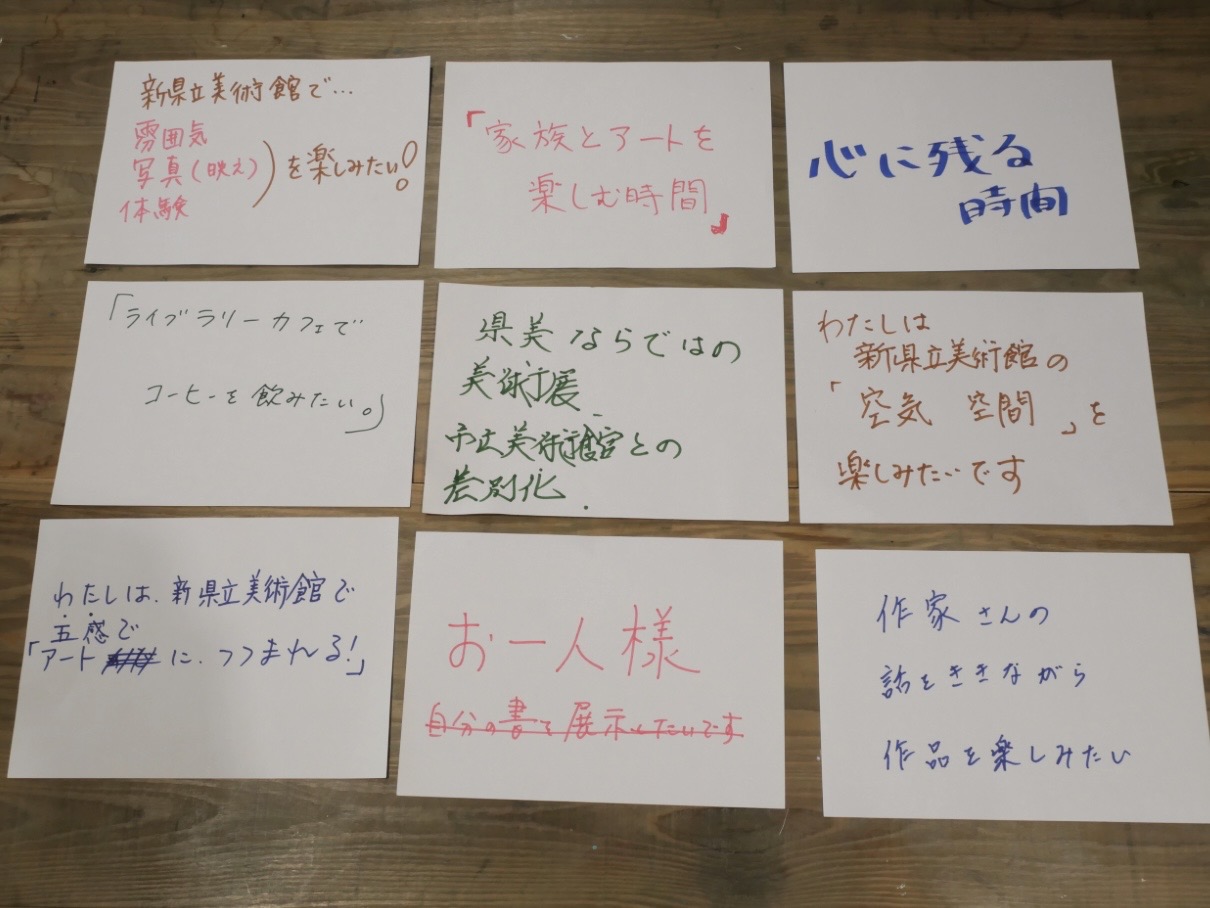 新県立美術館で…
雰囲気
写真(映え)
体験
を楽しみたい!
「家族とアートを
楽しむ時間」
心に残る
時間
「ライブラリーカフェで
コーヒーを飲みたい。」
県美ならではの
美術展
市立美術館との
差別化
わたしは
新県立美術館の
「空気 空間」を
楽しみたいです
わたしは、新県立美術館で
五感で
「アート に、つつまれる!」
お一人様
自分の書を展示したいです
作家さんの
話をききながら
作品を楽しみたい